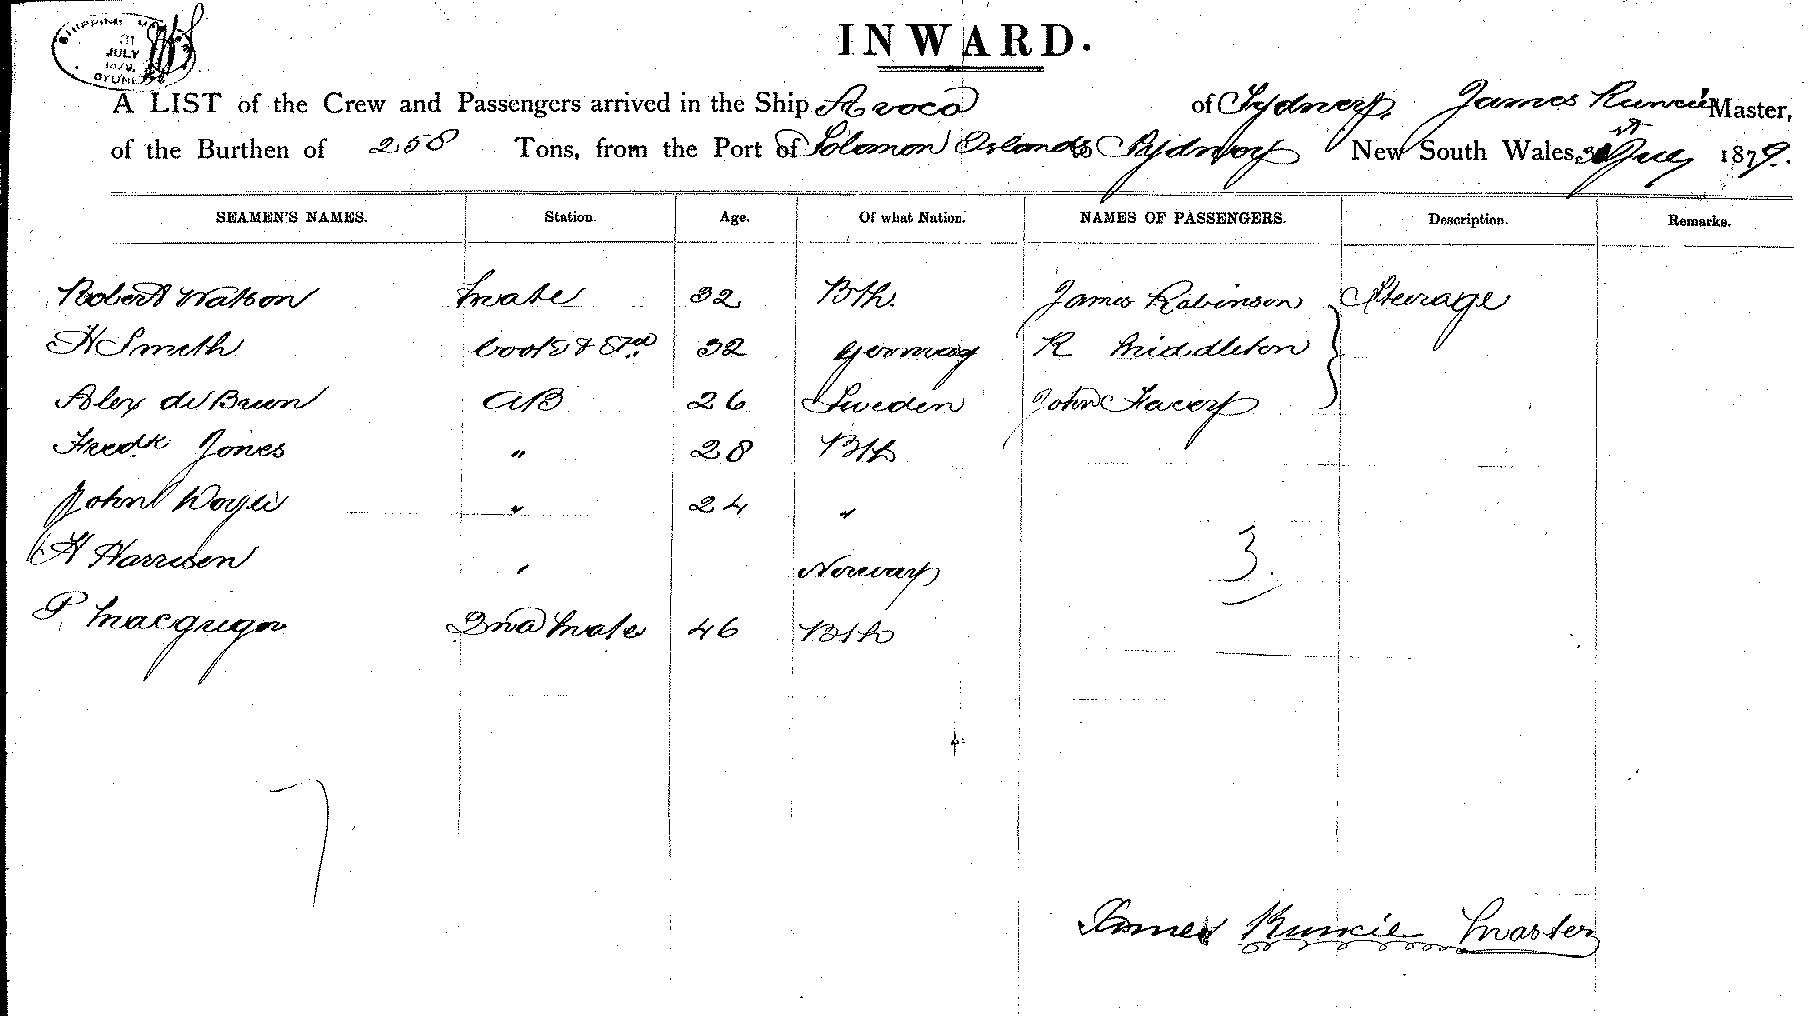 SHIPPING MASTER
31
JULY
1879.
SYDNEY
INWARD.
A LIST of the Crew and Passengers arrived in the Ship Avoca of Sydney, James Runcie Master,
of the Burthen of 258 Tons, from the Port of Solomon Islands to Sydney New South Wales, 31st July 1879.
SEAMEN'S NAMES. Station. Age. Of what Nation. NAMES OF PASSENGERS. Description. Remarks.
Robert Watson Mate 32 Bth. James Robinson Steerage
H Smith Cook & Std. 32 Germay R Middleton
Alex de Bruun AB 26 Sweden John Facey
Fredk Jones " 28 Bth
John Doyle " 24 "
H Harrison " Norway
3.
P. Macgregor 2nd Mate 46 Bth
7
James Runcie Master